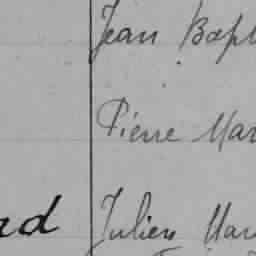 Jean Bapt
Pierre Mar
rd Julien Mar